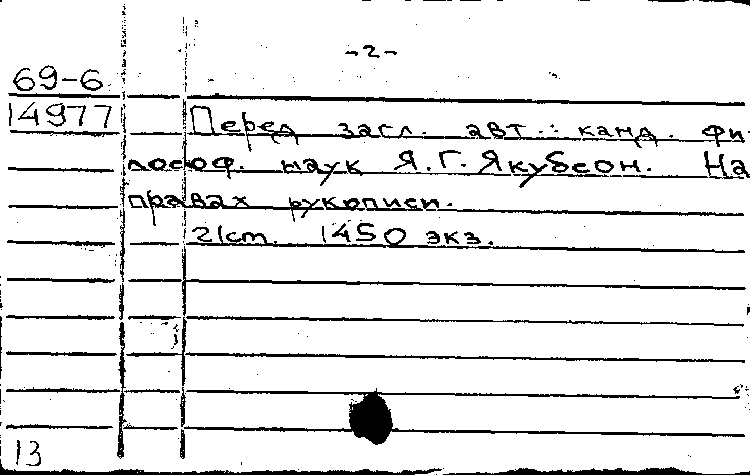 -2-
69-6
14977 Перед загл. авт.: канд. фи-
лософ. наук Я.Г. Якубсон. На
правах рукописи.
21 cm. 1450 экз.
13